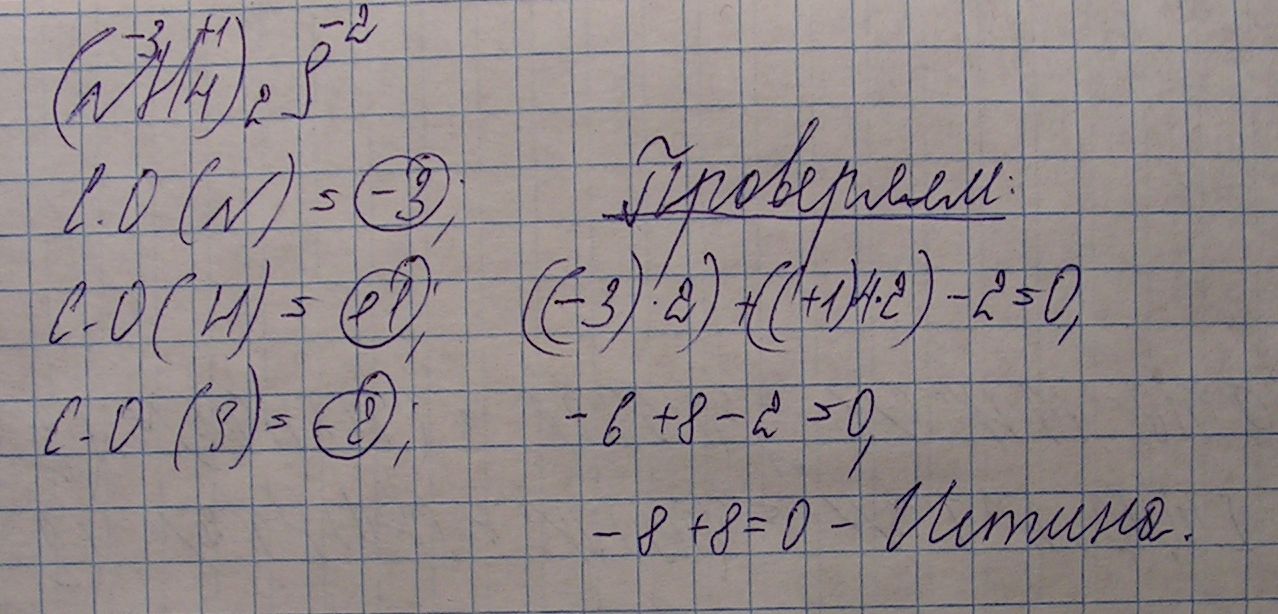 (N⁻³H⁺¹₄)₂S⁻²
С.О (N) = -3;
С-О (H) = +1;
С-О (S) = -2;
Проверяем:
((-3)·2) + ((+1)4·2) - 2 = 0,
-6 + 8 - 2 = 0,
-8 + 8 = 0 - Истина.